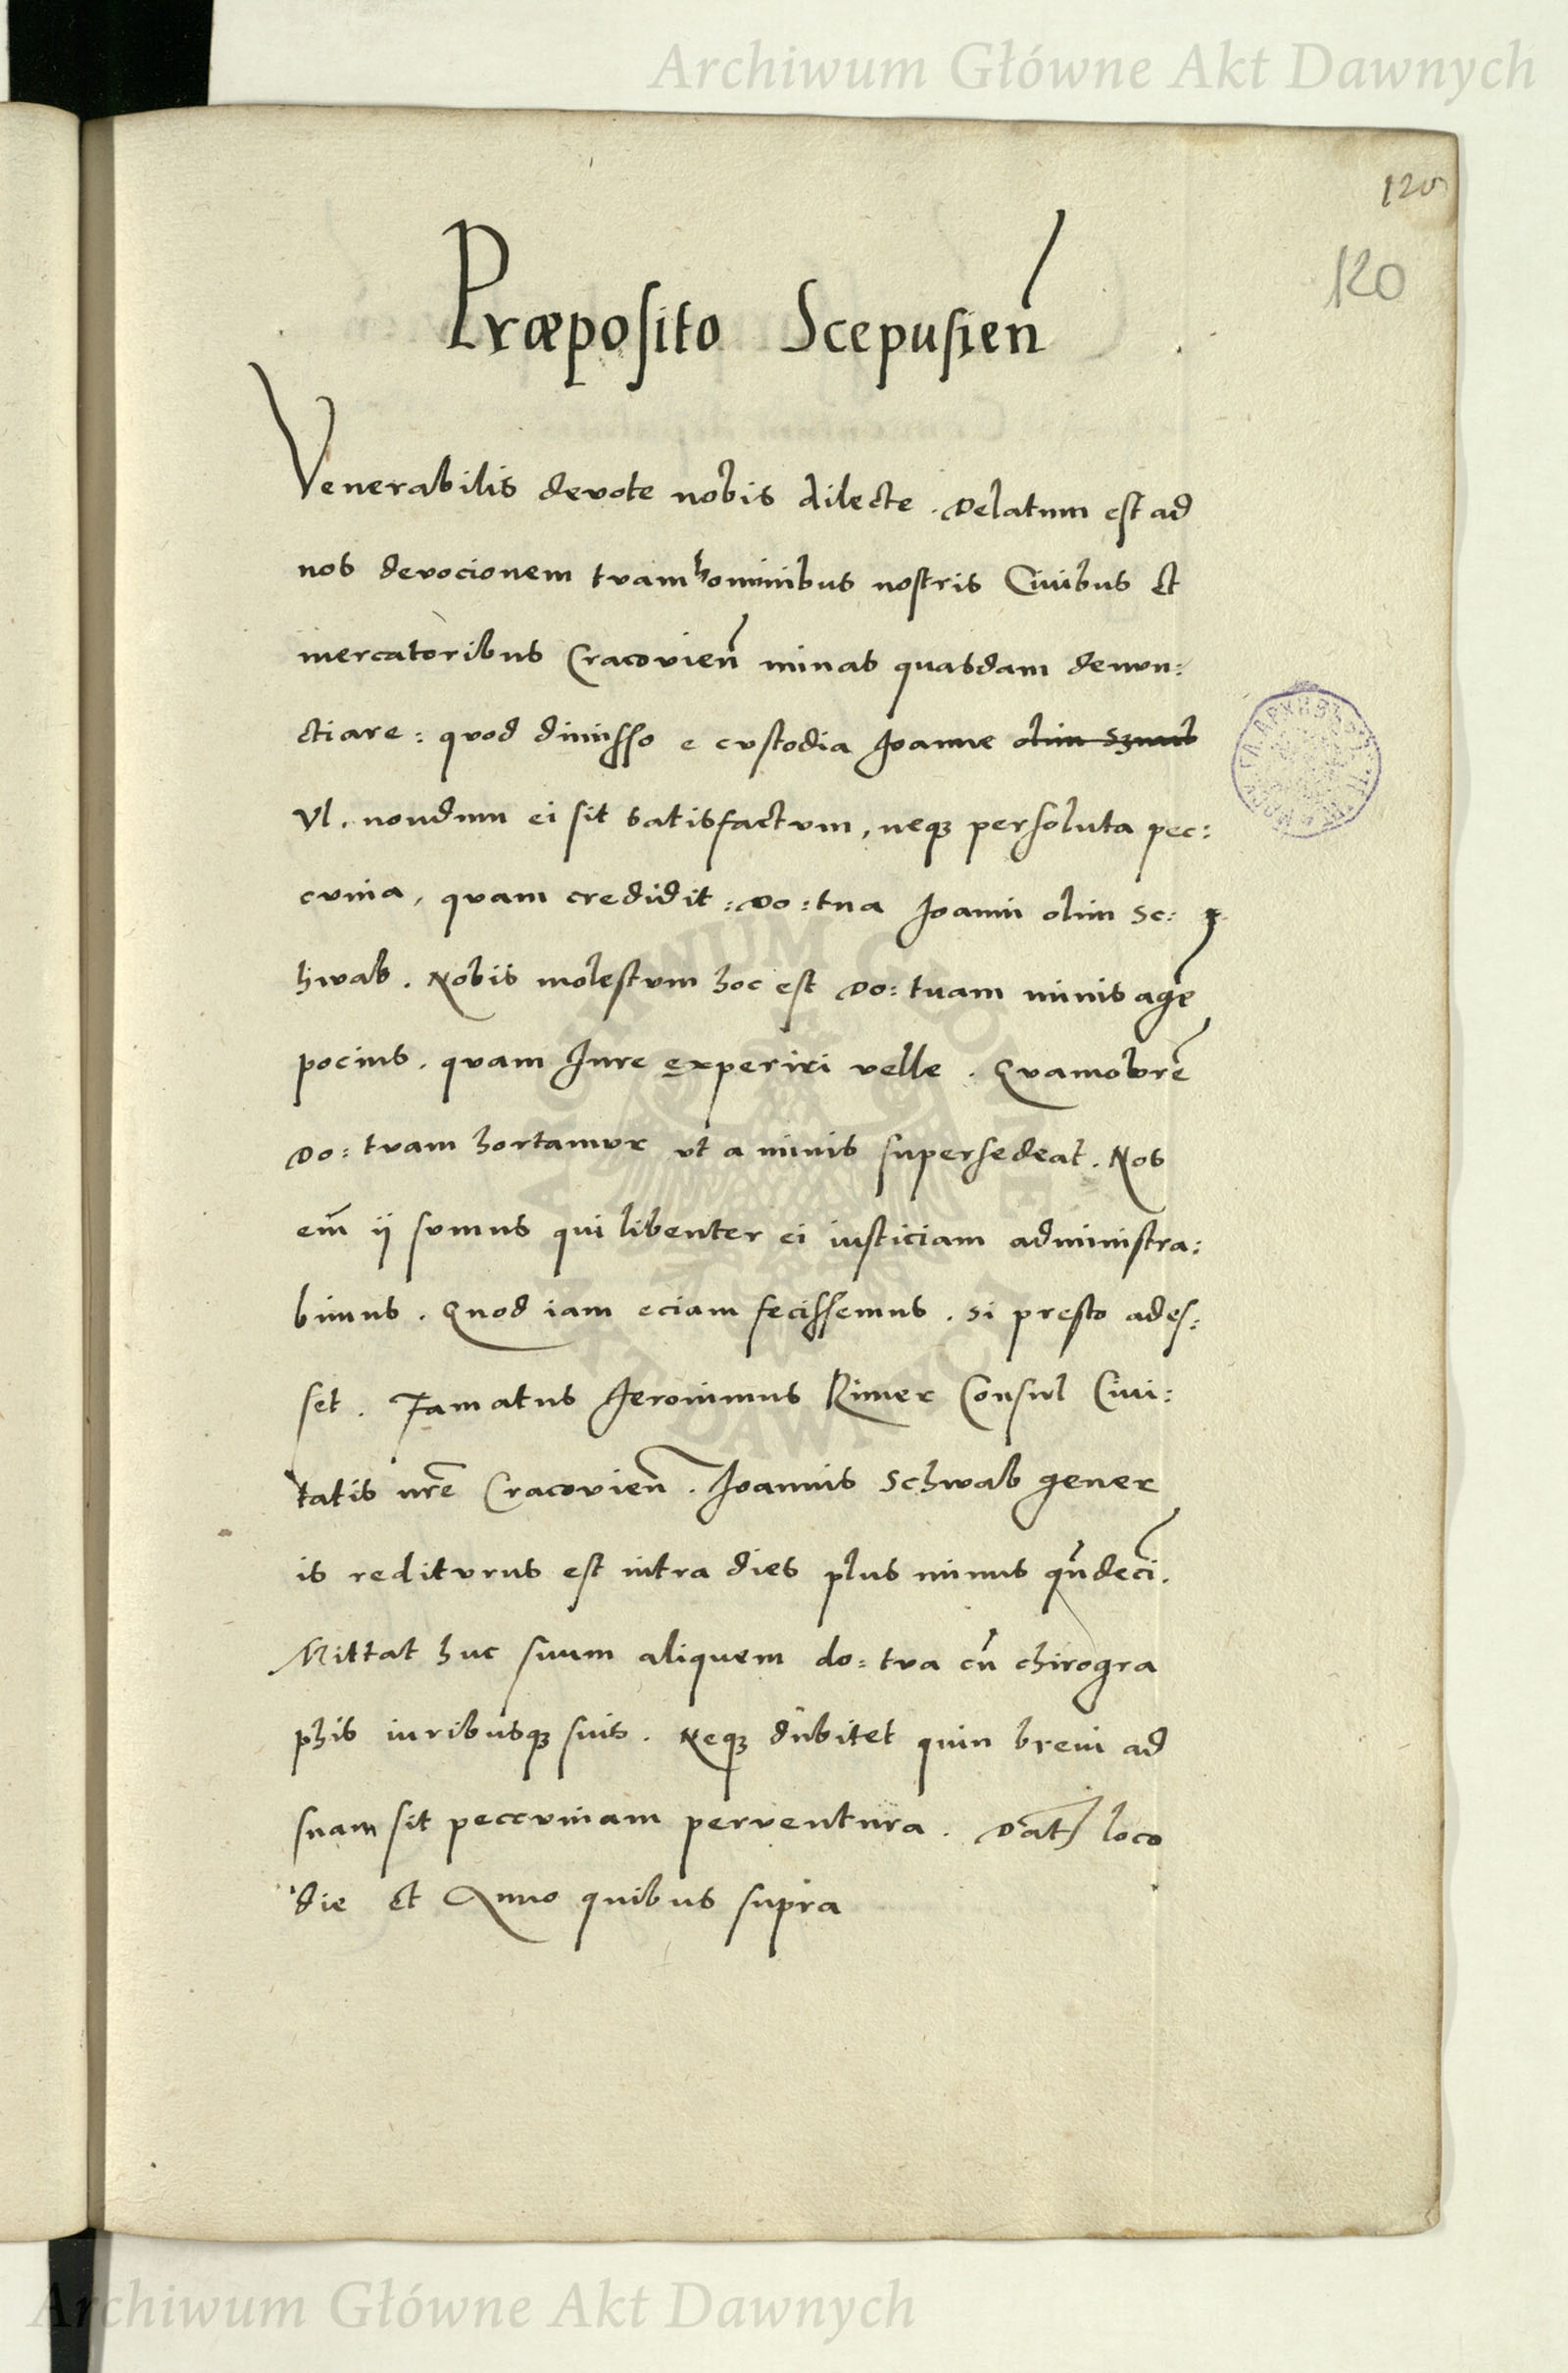 Archiwum Główne Akt Dawnych
120
120
Præposito Scepusien̄
Venerabilis devote nobis dilecte. Delatum est ad
nos devocionem tvam hominibus nostris Civibus et
mercatoribus Cracovien̄ minas quasdam denvn:
ctiare: quod dimisso e cvstodia Joanne olim
Vl. nondum ei sit satisfactvm, neqz persoluta pec:
cvnia, qvam credidit: Do: tua Joanni olim Sc:
hwab. Nobis molestvm hoc est Do: tvam minis agere̅
pocius. qvam Jure experiri velle. Qvamobre̅
Do: tvam hortamvr vt a minis supersedeat. Nos
em̅ ij svmus qui libenter ei iusticiam administra:
bimus. Quod iam eciam fecissemus. si presto ades:
set. Famatus Jeronimus Rimer Consul Civi:
tatis nr̅e Cracovien̄. Joannis Schwab gener
is reditvrus est intra dies plus minus qn̄deci̅.
Mittat huc suum aliquem do: tva cn̄ chirogra
phis iuribusqz suis. Neqz dubitet quin brevi ad
suam sit peccvniam perventura. Dat̅ loco
die et Anno quibus supra
ARCHIWUM GŁÓWNE
AKT DAWNYCH
Archiwum Główne Akt Dawnych